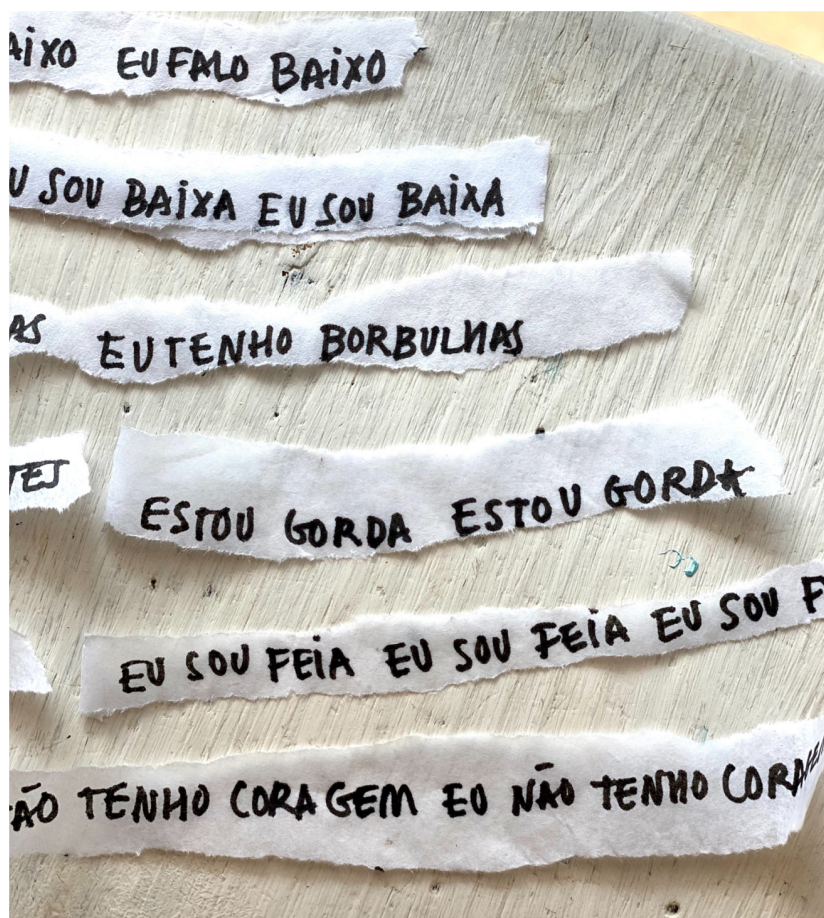 AIXO EU FALO BAIXO
U SOU BAIXA EU SOU BAIXA
AS EU TENHO BORBULHAS
TES ESTOU GORDA ESTOU GORDA
EU SOU FEIA EU SOU FEIA EU SOU F
ÃO TENHO CORAGEM EU NÃO TENHO CORAGEM